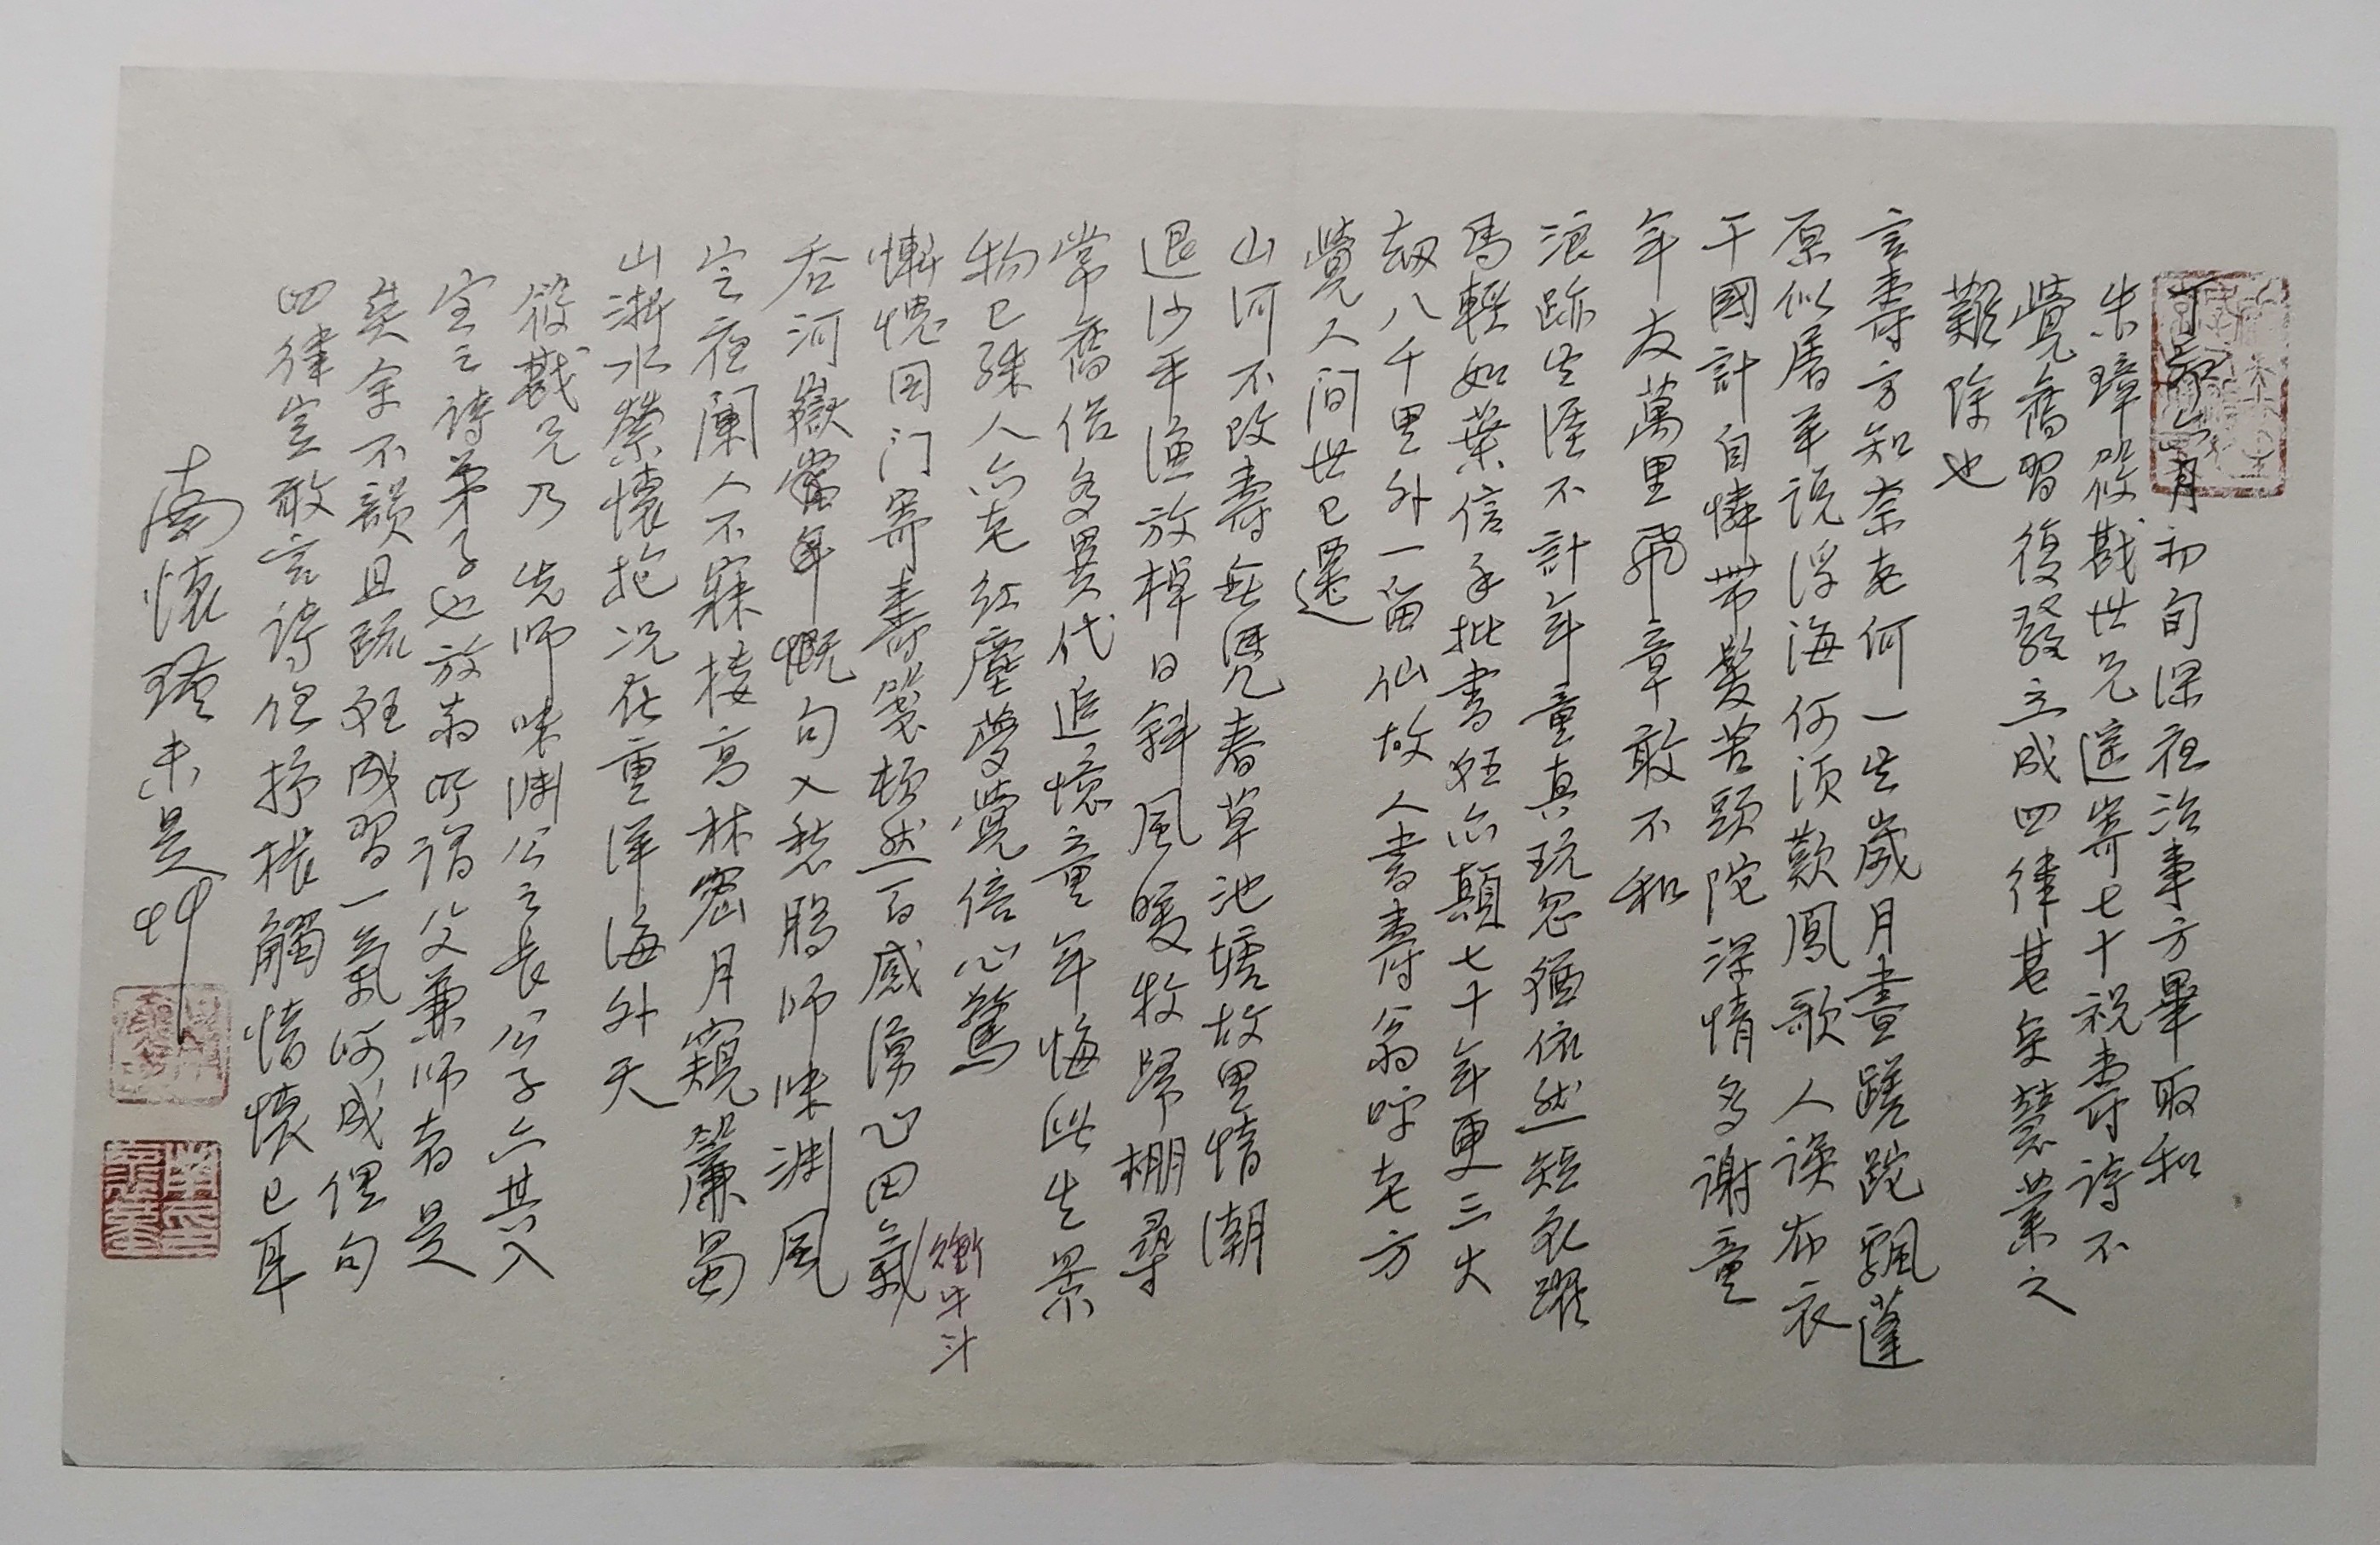 丁卯六月初旬深夜治事方畢取和
朱璋筱戡世兄遙寄七十祝壽詩不
覺舊習復發立成四律甚矣慧業之
難除也
言壽方知奈老何一生歲月盡蹉跎飄蓬
原似屠羊說浮海何須歎鳳歌人誤布衣
干國計自憐帶髮苦頭陀深情多謝童
年友萬里飛章敢不和
浪跡生涯不計年童真玩忽猶依然短衣躍
馬輕如葉信手批書狂亦顛七十年更三大
劫八千里外一留仙故人書壽翁呼老方
覺人間世已遷
山河不改壽無憑春草池塘故里情潮
退沙平漁放棹日斜風暖牧歸棚尋
常舊侶多異代追憶童年悔此生景
物已殊人亦老紅塵夢覺倍心驚
慚愧因门寄壽箋頓然百感湧心田氣
衝牛斗
吞河嶽當年慨句入愁腸師味渊風
定夜闌人不寐樓高林密月窺簾蜀
山浙水縈懷抱况在重洋海外天
筱戡兄乃先师味渊公之長公子亦其入
室之詩弟子也放翁所謂父兼师者是
矣余不韻且疏狂成習一氣呵成俚句
四律豈敢言詩但抒棖觸情懷已耳
南懷瑾未是艸